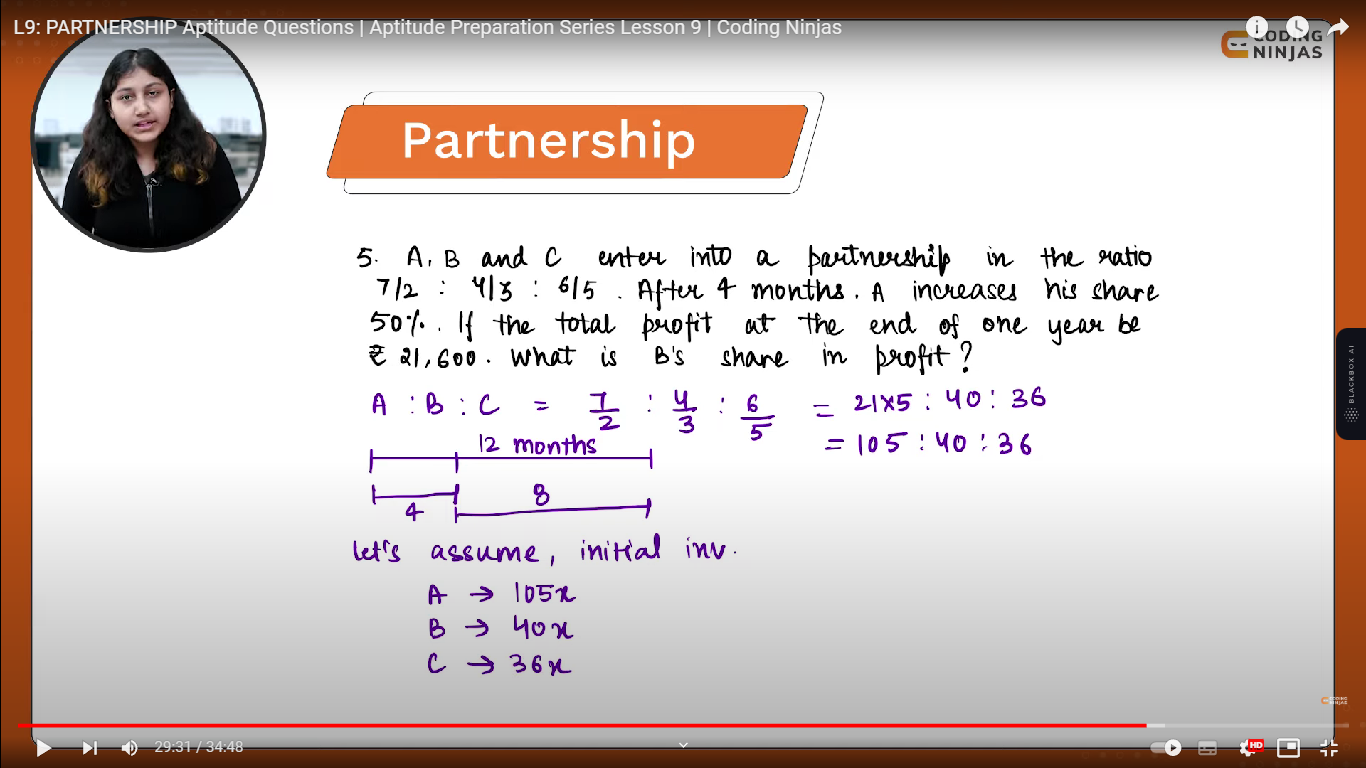 L9: PARTNERSHIP Aptitude Questions | Aptitude Preparation Series Lesson 9 | Coding Ninjas
CODING
NINJAS
Partnership
5. A, B and C enter into a partnership in the ratio
7/2 : 4/3 : 6/5. After 4 months. A increases his share
50%. If the total profit at the end of one year be
₹ 21,600. What is B's share in profit?
A : B : C = 7/2 : 4/3 : 6/5 = 21×5 : 40 : 36
= 105 : 40 : 36
12 months
4 8
let's assume, initial inv.
A → 105x
B → 40x
C → 36x
BLACKBOX AI
CODING
NINJAS
29:31 / 34:48
HD